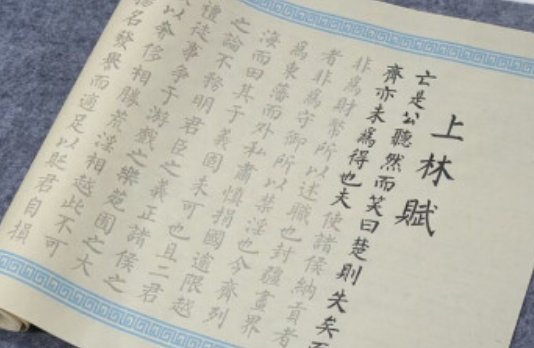 上林賦
亡是公聽然而笑曰楚則失矣而
齊亦未為得也夫使諸侯納貢者
非為財幣所以述職也封疆畫界
者非為守御所以禁淫也今齊列
為東藩而外私肅慎捐國逾限越
海而田其于義固未可也且二君
之論不務明君臣之義正諸侯之
禮徒事爭于游戲之樂苑囿之大
以奢侈相勝荒淫相越此不可
揚名發譽而適足以貶君自損